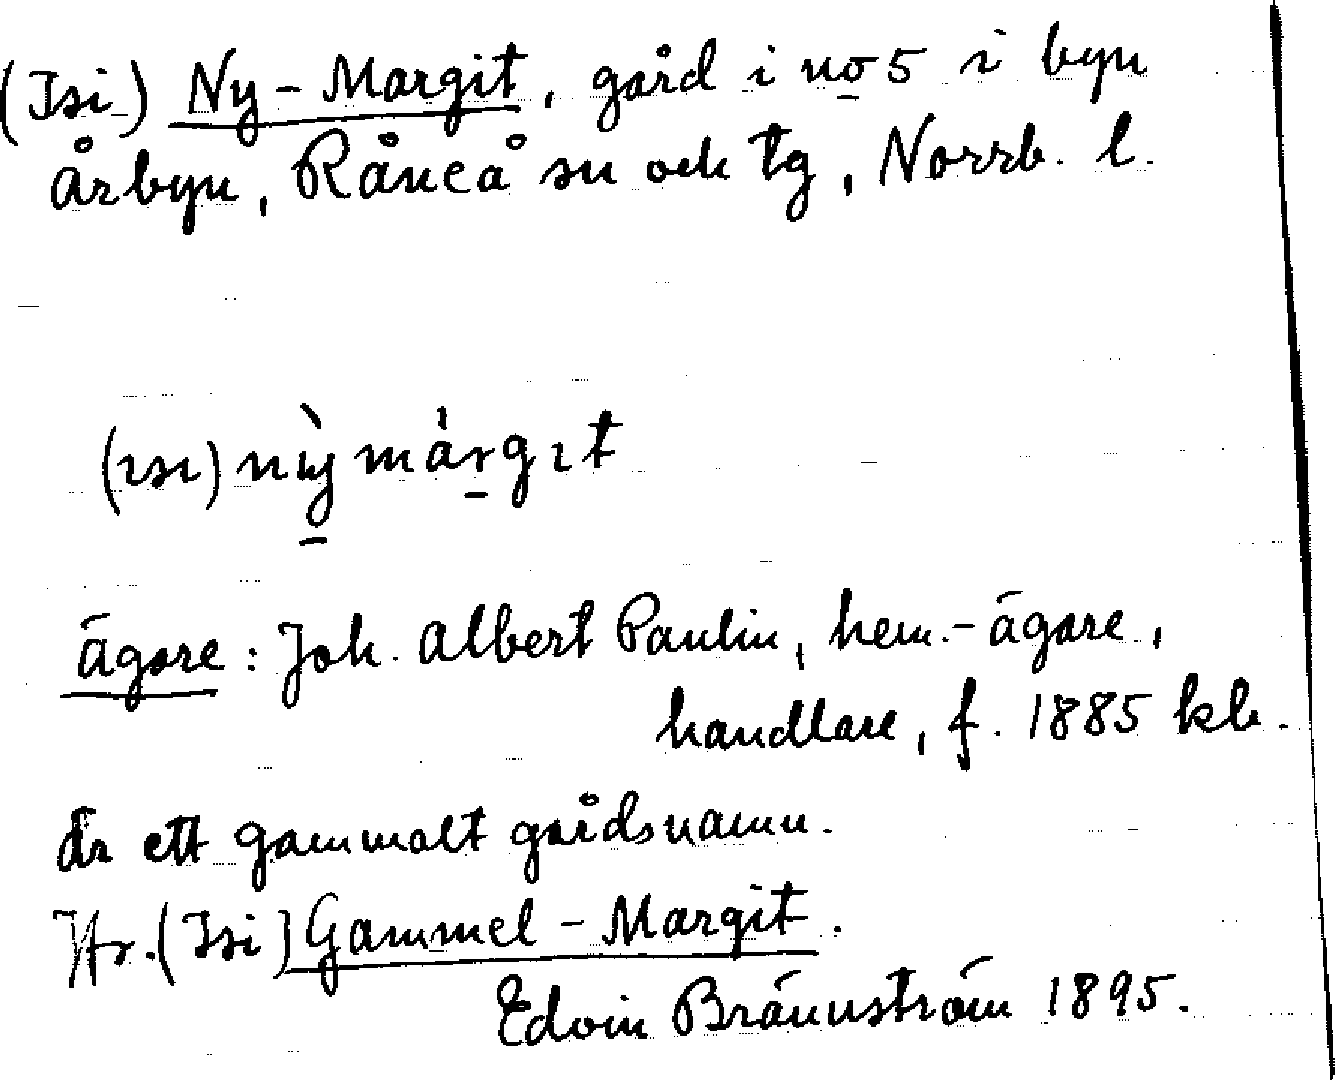 (Isi) Ny-Margit, gård i no 5 i byn
Årbyn, Råneå sn och tg, Norrb. l.
(ısı) nỳ màrgıt
ägare: Joh. Albert Paulin, hem.-ägare,
handlare, f. 1885 kb.
Är ett gammalt gårdsnamn.
Jfr. (Isi) Gammel-Margit.
Edvin Brännström 1895.